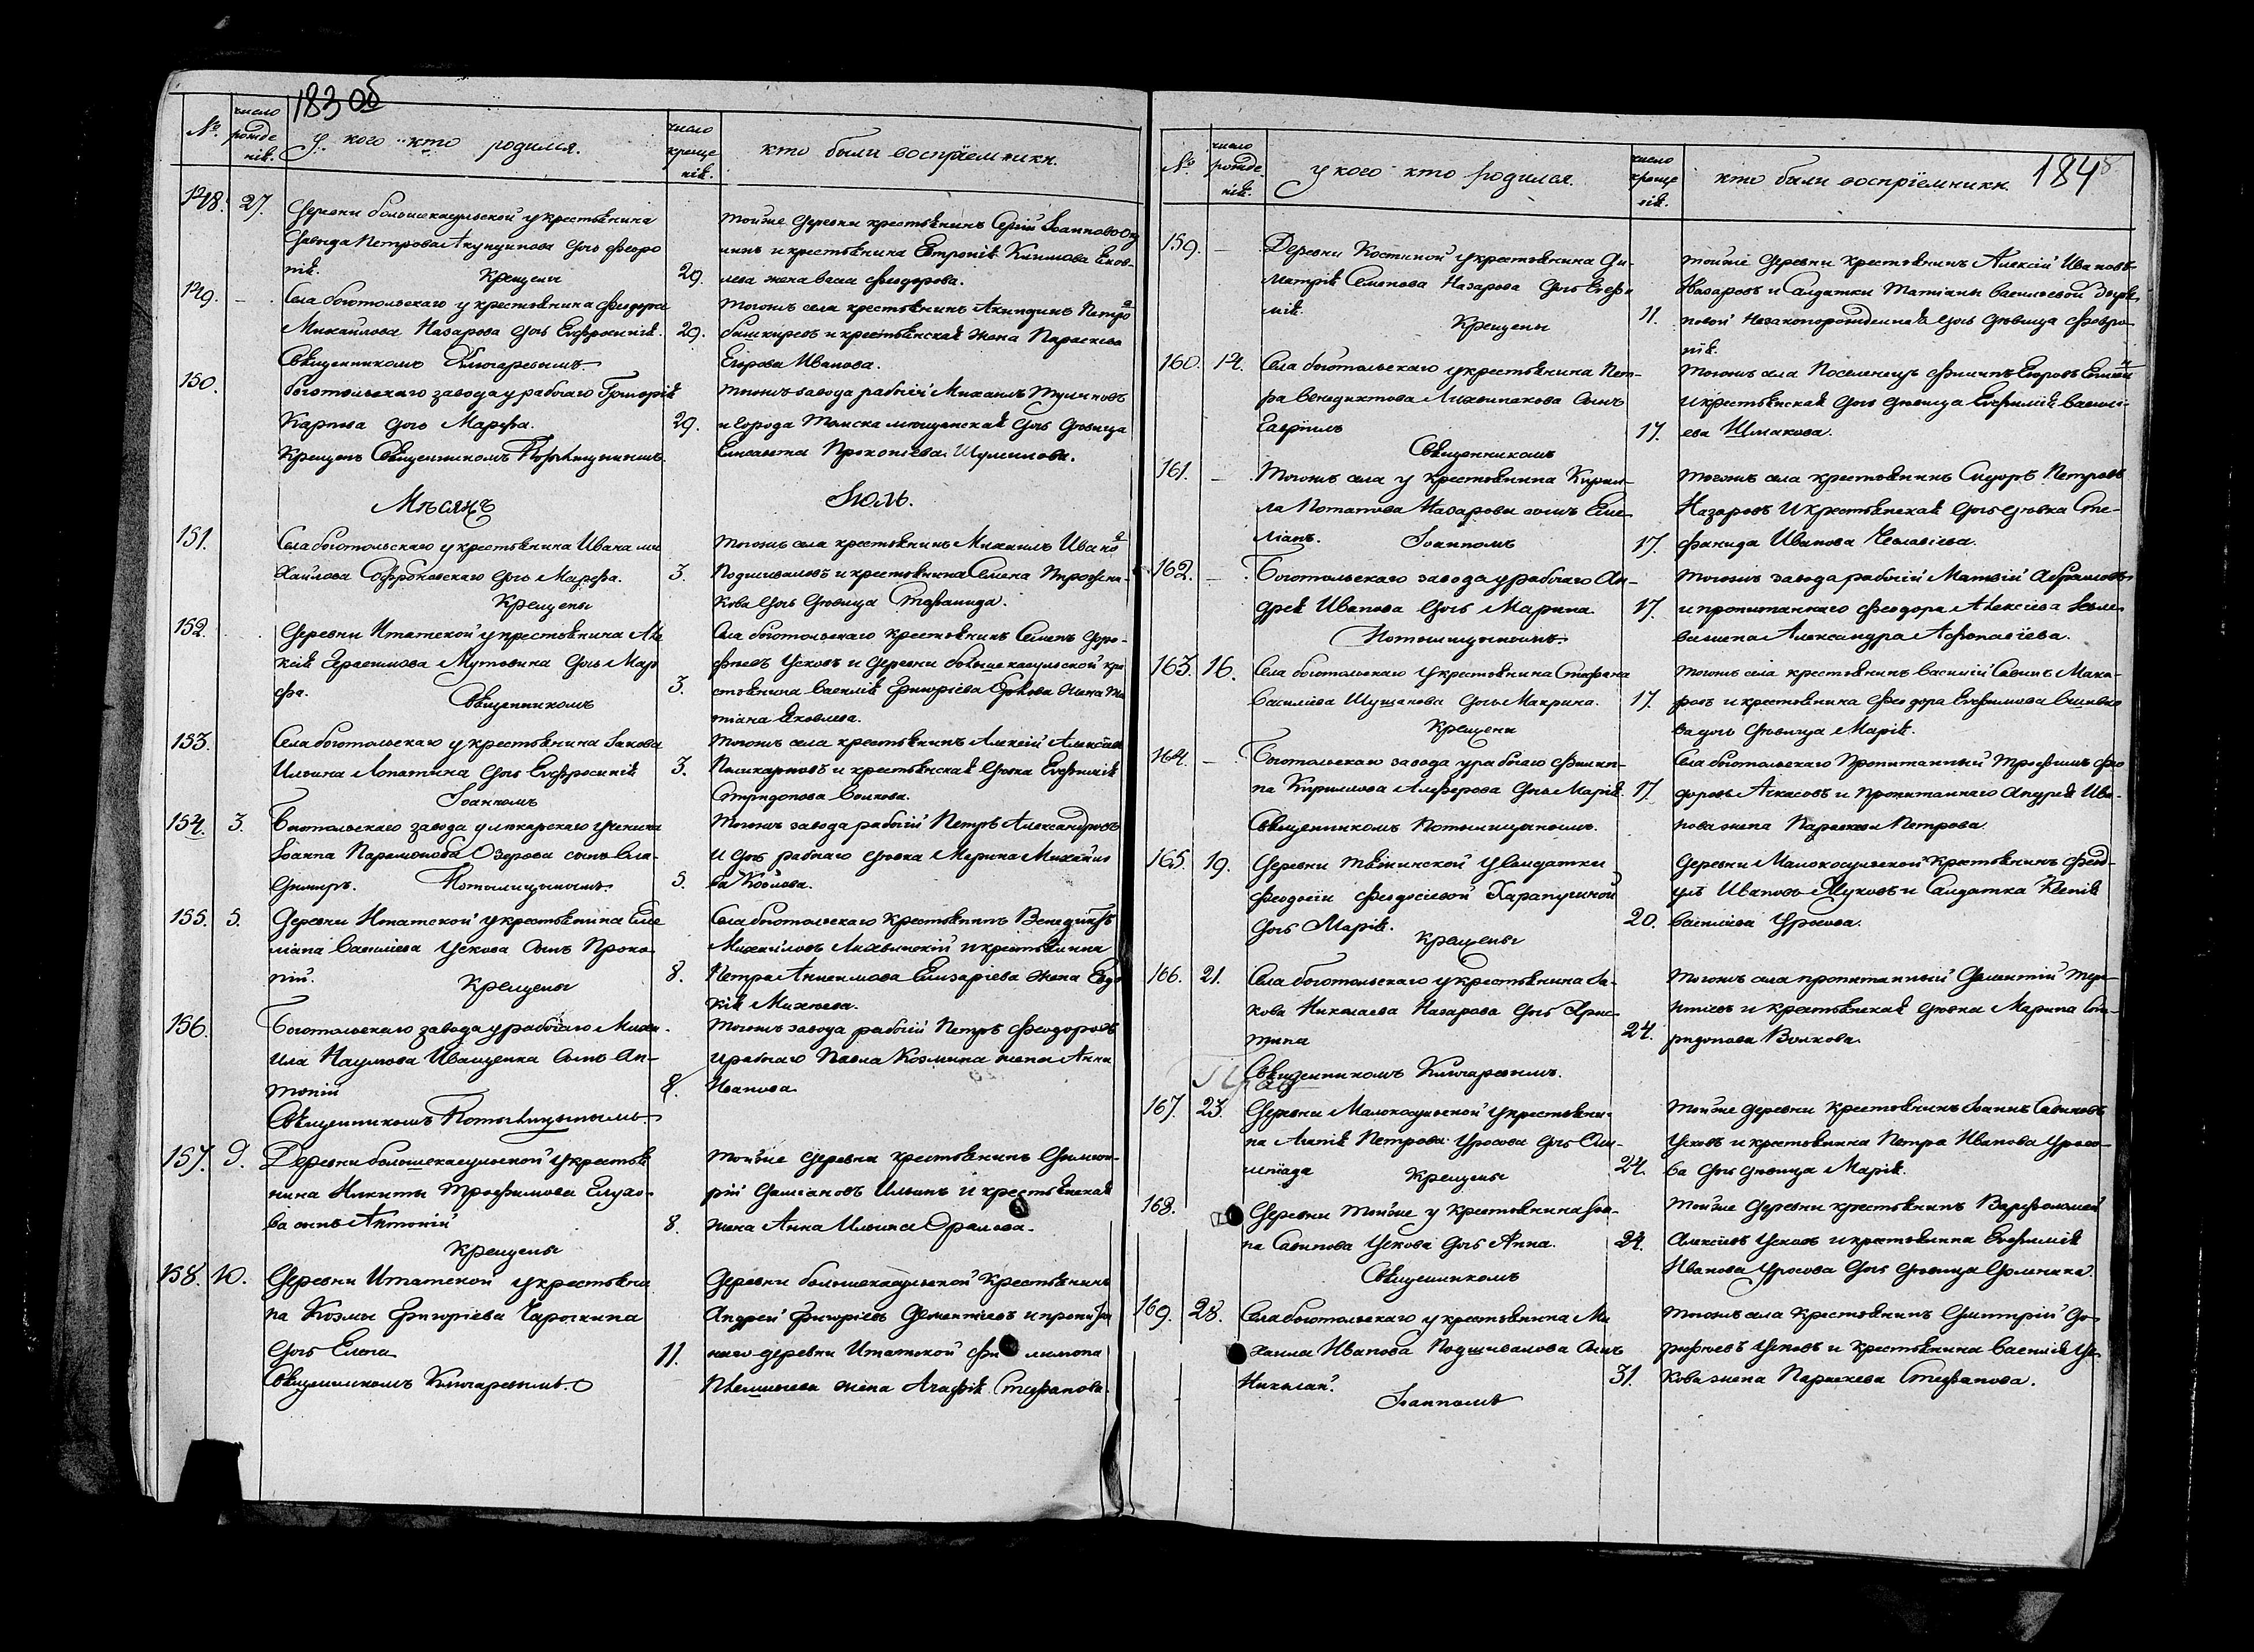 183 об
№. число рожденiя. У кого кто родился. число крещенiя. кто были воспрiемники.
148. 27. Деревни большекосульской у крестьянина
Давыда Петрова Акундинова дочь Февро
нiя. Крещены 29.
тойже деревни крестьянинъ Сергiй Iоанновъ
и крестьянина Климова
жена Феодорова.
149. – Села боготольскаго у крестьянина Феодора
Михайлова Назарова дочь Евфросинiя. 29.
Священникомъ Ключаревымъ.
тогожъ села крестьянинъ Акиндинъ Петро
и крестьянская жена Параскева
Егорова Иванова.
150. боготольскаго завода у рабочаго Григорiя
Карпова дочь Марфа. 29.
Крещенъ Священникомъ
тогожъ завода рабочiй Михаилъ
и города Томска мещанская дочь девица
Елисавета Прокопiева Шумилова.
Мѣсяцъ Iюль.
151. Села боготольскаго у крестьянина Ивана ми
хайлова дочь Марфа. 3.
Крещены
тогожъ села крестьянинъ Михаилъ Ивано
Подшиваловъ и крестьянина
кова дочь девица Стефанида.
152. Деревни Итатской у крестьянина Але
ксiя Герасимова Мутовина дочь Мар
фа. Священникомъ 3.
Села боготольскаго крестьянинъ Семенъ Доро-
феевъ Усковъ и деревни большекосульской кре
стьянина Василiя Григорiева жена Та
тiана Яковлева.
153. Села боготольскаго у крестьянина Iакова
Ильина Лопатина дочь Евфросинiя 3.
Iоанномъ
тогожъ села крестьянинъ Алексiй Алексѣевъ
Поликарповъ и крестьянская девка Евфимiя
Спиридонова Волкова.
154. 3. Боготольскаго завода у лекарскаго ученика
Iоанна Парамонова Озерова сынъ Вла-
димiръ. Потылицынымъ. 5.
тогожъ завода рабочiй Петръ Александровъ
и дочь рабочаго девка Марина Михайло
ва
155. 5. Деревни Итатской у крестьянина Еме
лiана Василiева Ускова сынъ Проко
пiй. Крещены 8.
Села боготольскаго крестьянинъ Венедиктъ
Михайловъ и крестьянина
Петра Анисимова Елизарiева жена Евдо
кiя Михеева.
156. Боготольскаго завода у рабочаго Миха-
ила Наумова Иващенка сынъ Ан-
тонiй 8.
Священникомъ Потылицынымъ.
тогожъ завода рабочiй Петръ Феодоровъ
и рабочаго Павла Козмина жена Анна
Иванова
157. 9. Деревни большекосульской у крестья
нина Никиты Трофимова
ва сынъ Антонiй 8.
Крещены
тойже деревни крестьянинъ
рiй Дамiановъ Ильинъ и крестьянская
жена Анна Ильина
158. 10. Деревни Итатской у крестьяни
на Козмы Григорiева Чарочкина
дочь Елена 11.
Священникомъ Ключаревымъ.
Деревни большекосульской Крестьянинъ
Андрей Григорiевъ Дементiевъ и пропита
наго деревни Итатской
жена Агафiя Стефанова.
184
№ число рожденiя. у кого кто родился. число крещенiя. кто были воспрiемники
159. – Деревни Костиной у крестьянина Ди-
митрiя Семенова Назарова дочь Евфи
мiя. 11.
Крещены
тойже деревни крестьянинъ Алексiй Ивановъ
Назаровъ и Солдатки Татiаны Василiевой
новой незаконорожденная дочь девица Февро
нiя.
160. 14. Села боготольскаго у крестьянина Пет-
ра Венедиктова сынъ
Гаврiилъ 17.
Священникомъ
тогожъ села Поселенецъ Филипъ Егоровъ
и крестьянская дочь девица Евфимiя Васил-
ева Шмакова.
161. – Тогожъ села у Крестьянина Кирил-
ла Потапова Назарова сынъ Еме
лiанъ. Iоанномъ 17.
тогожъ села крестьянинъ Сидоръ Петровъ
Назаровъ и Крестьянская дочь девка Сте-
фанида Иванова
162. – Боготольскаго завода у рабочаго Ан-
дрея Иванова дочь Марина. 17.
Потылицынымъ.
тогожъ завода рабочiй Матвiй Абрамовъ
и пропитаннаго Феодора Алексiева
жена Александра Афонасiева.
163. 16. Села боготольскаго у крестьянина Стефана
Василiева дочь Макрина. 17.
Крещены
тогожъ села крестьянинъ Василiй Савинъ Мака-
ровъ и крестьянина Феодора Евфимова
ва дочь девица Марiя.
164. – Боготольскаго завода у рабочаго Филип-
па Кириллова Алферова дочь Марiя 17.
Священникомъ Потылицынымъ.
Села боготольскаго Пропитанный Трофимъ Фео
доровъ и пропитаннаго Андрея Ива-
нова жена Параскева Петрова.
165. 19. Деревни у Солдатки
Феодосiи Феодосiевой
дочь Марiя. 20.
Крещены
Деревни Малокосульской Крестьянинъ
Ивановъ Жуковъ и Солдатка Ксенiя
Василiева Уросова.
166. 21. Села боготольскаго у крестьянина Iа-
кова Николаева Назарова дочь Хрис-
тина 24.
Священникомъ Ключаревымъ.
тогожъ села пропитанный
и Крестьянская девка Марина Спи-
ридонова Волкова.
167. 23. Деревни Малокосульской у крестьяни-
на Петрова Уросова дочь Оли-
мпiада Крещены 24.
тойже деревни Крестьянинъ Iоаннъ Савиновъ
Усковъ и крестьянина Петра Иванова Уросо-
ва дочь девица Марiя.
168. Деревни тойже у Крестьянина Iоан-
на Савинова Ускова дочь Анна. 24.
Священникомъ
тойже деревни крестьянинъ Варфоломей
Алексiевъ Усковъ и крестьянина Евфимiя
Иванова Уросова дочь девица Домникiя.
169. 28. Села боготольскаго у крестьянина Ми
хаила Иванова Подшивалова сынъ
Николай. 31.
Iоанномъ
тогожъ села Крестьянинъ Димитрiй До-
рофеевъ Усковъ и Крестьянина Василiя Ус-
кова жена Параскева Стефанова.